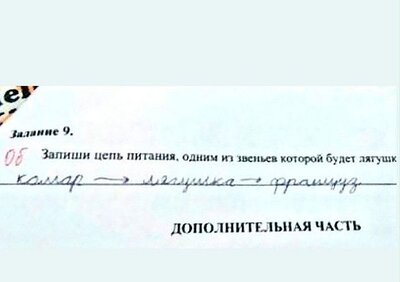 Задание 9.
0б Запиши цепь питания, одним из звеньев которой будет лягушк
комар → лягушка → француз.
ДОПОЛНИТЕЛЬНАЯ ЧАСТЬ